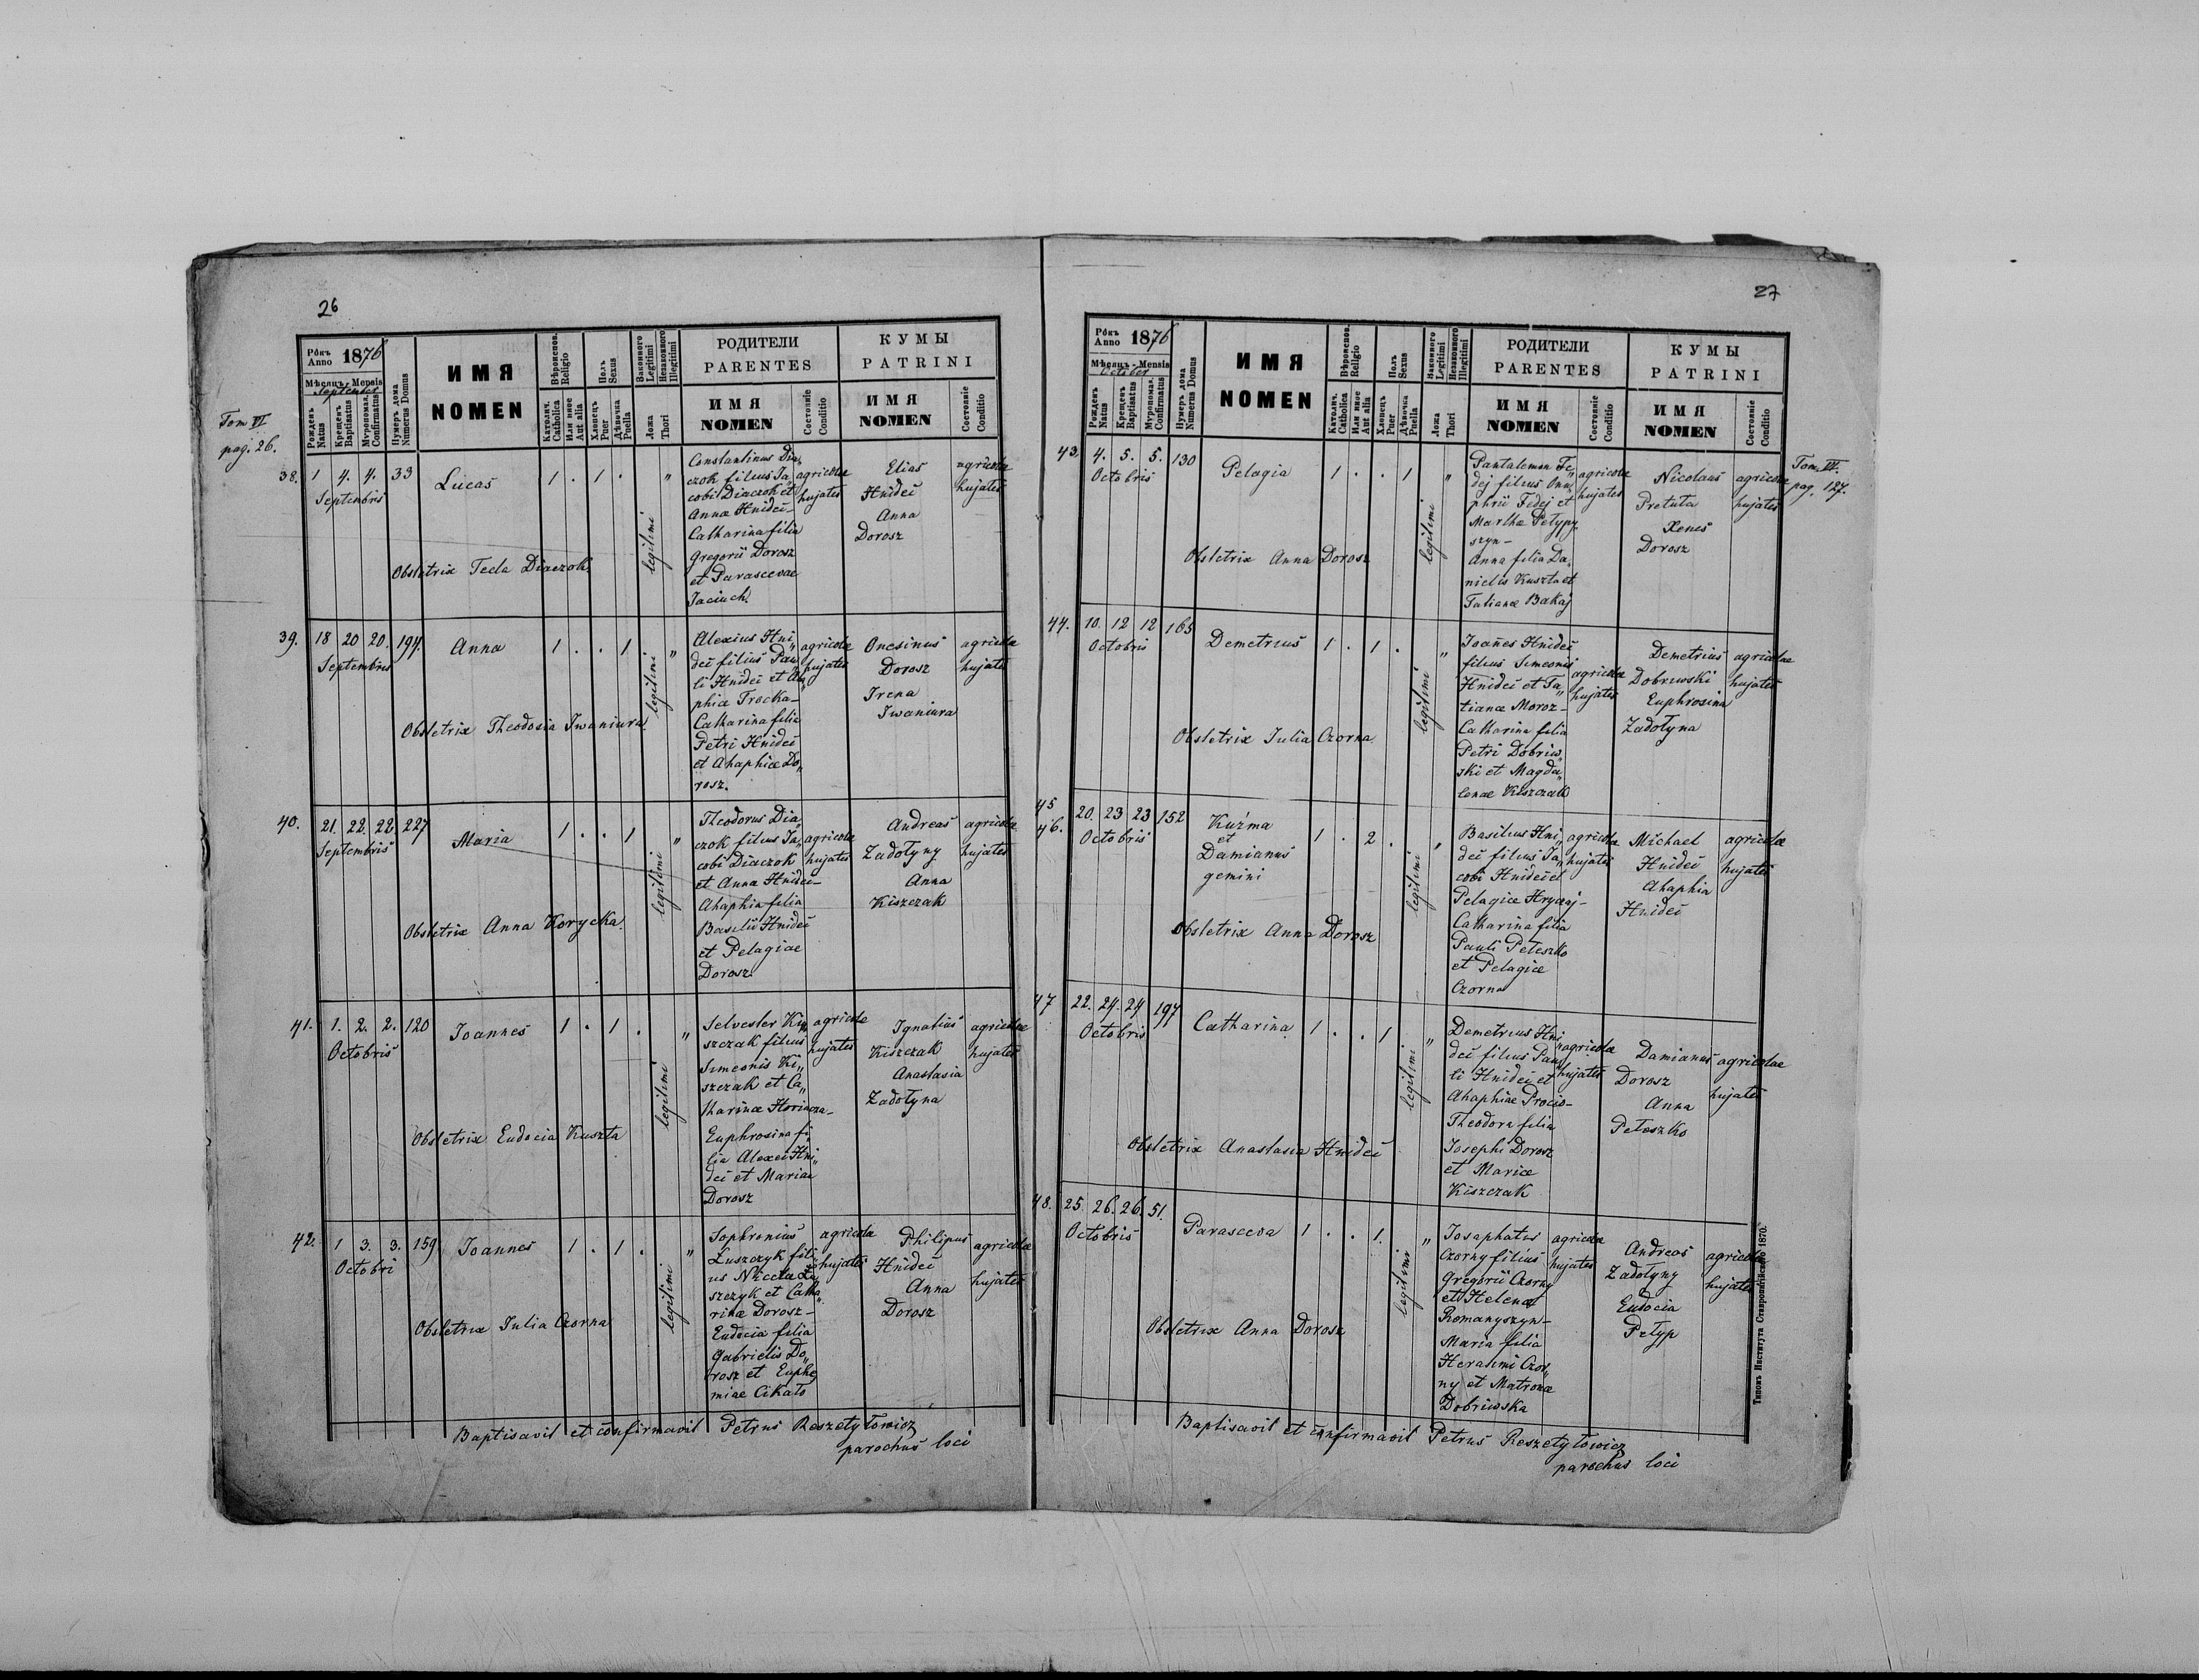 26
Рôкъ Anno 1876
Мѣсяць - Mensis
September
Рожденъ Natus
Крещенъ Baptisatus
Мѵропомаз. Confirmatus
Нумеръ дома Numerus Domus
ИМЯ
NOMEN
Вѣроиспов. Religio
Католич. Catholica
Или иное Aut alia
Полъ Sexus
Хлопецъ Puer
Дѣвочка Puella
Законного Legitimi
Незаконного Illegitimi
Ложа Thori
РОДИТЕЛИ
PARENTES
ИМЯ
NOMEN
Состояніе Conditio
КУМЫ
PATRINI
ИМЯ
NOMEN
Состояніе Conditio
Tom VI
pag. 26.
38. 1 4. 4. 33
Septembris
Lucas
1 . 1 . "
legitimi
Constantinus Dia„
czok filius Ja„
cobi Diaczok et
Annae Hnideі–
Catharina filia
Gregorii Dorosz
et Parascevae
Jaciuch.
agricolae
hujates
Elias
Hnidei
Anna
Dorosz
agricolae
hujates
Obstetrix Tecla Diaczok.
39. 18 20 20. 194.
Septembris
Anna
1 . . 1 "
legitimi
Alexius Hni„
dei filius Pau„
li Hnidei et Aha„
phiae Trocka–
Catharina filia
Petri Hnidei
et Ahaphiae Do„
rosz.
agricolae
hujates
Onesimus
Dorosz
Irena
Iwaniura
agricolae
hujates
Obstetrix Theodosia Iwaniura
40. 21. 22. 22. 227
Septembris
Maria
1 . . 1 "
legitimi
Theodorus Dia
czok filius Ja„
cobi Diaczok
et Anna Hnidei–
Ahaphia filia
Basilii Hnidei
et Pelagiae
Dorosz.
agricolae
hujates
Andreas
Zadołyny
Anna
Kiszczak
agricolae
hujates
Obstetrix Anna Korycka.
41. 1. 2. 2. 120
Octobris
Ioannes
1 . 1 . "
legitimi
Selvester Ki„
szczak filius
Simeonis Ki„
szczak et Ca„
tharinae
Euphrosina fi„
lia Alexei Hni„
dei et Mariae
Dorosz
agricolae
hujates
Ignatius
Kiszczak
Anastasia
Zadołyna
agricolae
hujates
Obstetrix Eudocia Kuszta
42. 1 3. 3. 159
Octobri
Ioannes
1 . 1 . "
legitimi
Sophronius
Łuszczyk fili„
us Nicetae Łu
szczyk et Catha„
rinae Dorosz–
Eudocia filia
Gabrielis Do„
rosz et Euphe
miae Cikało
agricolae
hujates
Philipus
Hnidei
Anna
Dorosz
agricolae
hujates
Obstetrix Iulia Czorna
Baptisavit et confirmavit Petrus Reszetyłowicz
parochus loci
27
Рôкъ Anno 1876
Мѣсяць - Mensis
October
Рожденъ Natus
Крещенъ Baptisatus
Мѵропомаз. Confirmatus
Нумеръ дома Numerus Domus
ИМЯ
NOMEN
Вѣроиспов. Religio
Католич. Catholica
Или иное Aut alia
Полъ Sexus
Хлопецъ Puer
Дѣвочка Puella
Законного Legitimi
Незаконного Illegitimi
Ложа Thori
РОДИТЕЛИ
PARENTES
ИМЯ
NOMEN
Состояніе Conditio
КУМЫ
PATRINI
ИМЯ
NOMEN
Состояніе Conditio
43. 4. 5. 5. 130
Octobris
Pelagia
1 . . 1 "
legitimi
Pantalemon Fe„
dej filius Onu„
phrii Fedej et
Marthae Petypy
szyn–
Anna filia Da„
nielis Kuszta et
Tatianae Bakaj
agricolae
hujates
Nicolaus
Pretuta
Xenes
Dorosz
agricolae
hujates
Tom. IV.
pag. 127.
Obstetrix Anna Dorosz
44. 10. 12 12 165
Octobris
Demetrius
1 . 1 . "
legitimi
Ioañes Hnidei
filius Simeonis
Hnidei et Ta„
tianae Moroz–
Catharina filia
Petri Dobriw„
ski et Magda„
lenae Kiszczak
agricolae
hujates
Demetrius
Dobrzwski
Euphrosina
Zadołyna
agricolae
hujates
Obstetrix Iulia Czorna
45
46. 20. 23 23 152
Octobris
Kuźma
et
Damianus
gemini
1 . 2 . "
legitimi
Basilius Hni„
dei filius Ja„
cobi Hnidei et
Pelagiae Hrycaj–
Catharina filia
Pauli Peteszko
et Pelagiae
Czorna
agricolae
hujates
Michael
Hnidei
Ahaphia
Hnidei
agricolae
hujates
Obstetrix Anna Dorosz
47 22. 24. 24 197
Octobris
Catharina
1 . . 1 "
legitimi
Demetrius Hni„
dei filius Pau„
li Hnidei et
Ahaphiae Procio–
Theodora filia
Josephi Dorosz
et Mariae
Kiszczak
agricolae
hujates
Damianus
Dorosz
Anna
Peteszko
agricolae
hujates
Obstetrix Anastasia Hnidei
48. 25. 26. 26. 51.
Octobris
Parasceva
1 . . 1. "
legitimi
Josaphatus
Czorny filius
Gregorii Czorny
et Helenae
Romanyszyn–
Maria filia
Herasimi Czor„
ny et Matronae
Dobriwska
agricolae
hujates
Andreas
Zadołyny
Eudocia
Petyp
agricolae
hujates
Obstetrix Anna Dorosz
Baptisavit et confirmavit Petrus Reszetyłowicz
parochus loci
Типомъ Института Ставропигійского 1870.